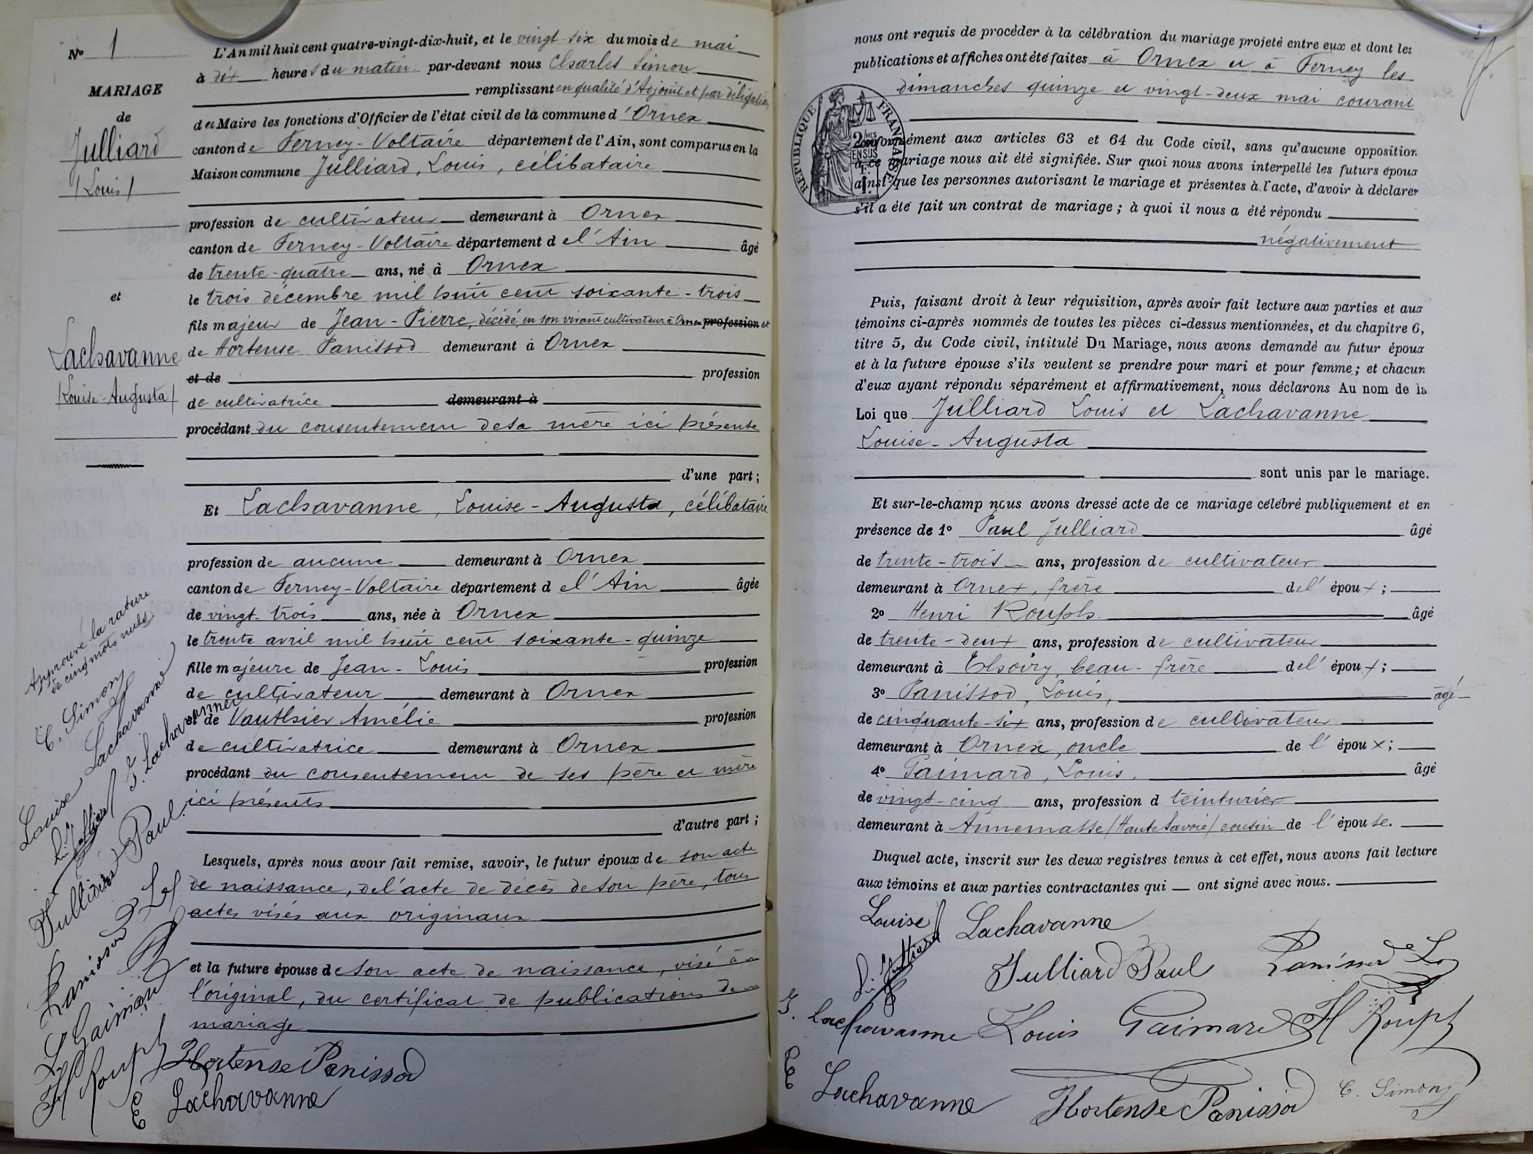 N° 1
MARIAGE
de
Julliard
/Louis/
et
Lachavanne
/Louise-Augusta/
L'An mil huit cent quatre-vingt-dix-huit, et le vingt-six du mois de mai
à dix heures du matin par-devant nous Charles Simon
remplissant en qualité d'Adjoint et par délégation
du Maire les fonctions d'Officier de l'état civil de la commune d'Ornex
canton de Ferney-Voltaire département de l'Ain, sont comparus en la
Maison commune Julliard, Louis, célibataire
profession de cultivateur demeurant à Ornex
canton de Ferney-Voltaire département de l'Ain âgé
de trente-quatre ans, né à Ornex
le trois décembre mil huit cent soixante-trois
fils majeur de Jean-Pierre, décédé en son vivant cultivateur à Ornex profession et
de Hortense Panissod demeurant à Ornex
et de profession
de cultivatrice demeurant à
procédant du consentement de sa mère ici présente
d'une part;
Et Lachavanne, Louise-Augusta, célibataire
profession de aucune demeurant à Ornex
canton de Ferney-Voltaire département de l'Ain âgée
de vingt-trois ans, née à Ornex
le trente avril mil huit cent soixante-quinze
fille majeure de Jean-Louis profession
de cultivateur demeurant à Ornex
et de Vauthier Amélie profession
de cultivatrice demeurant à Ornex
procédant du consentement de ses père et mère
ici présents
d'autre part;
Lesquels, après nous avoir fait remise, savoir, le futur époux de son acte
de naissance, de l'acte de décès de son père, tous
actes visés aux originaux
et la future épouse de son acte de naissance, visé à
l'original, du certificat de publications de
mariage
Hortense Panissod
E Lachavanne
Approuvé la rature
de cinq mots nuls
C. Simon
Louise Lachavanne
L. Julliard
J. Lachavanne
Julliard Paul
Panissod Ls
L Gaimard
H Rouph
nous ont requis de procéder à la célébration du mariage projeté entre eux et dont les
publications et affiches ont été faites à Ornex et à Ferney les
dimanches quinze et vingt-deux mai courant
RÉPUBLIQUE FRANÇAISE
conformément aux articles 63 et 64 du Code civil, sans qu'aucune opposition
à ce mariage nous ait été signifiée. Sur quoi nous avons interpellé les futurs époux
ainsi que les personnes autorisant le mariage et présentes à l'acte, d'avoir à déclarer
s'il a été fait un contrat de mariage; à quoi il nous a été répondu
négativement
Puis, faisant droit à leur réquisition, après avoir fait lecture aux parties et aux
témoins ci-après nommés de toutes les pièces ci-dessus mentionnées, et du chapitre 6,
titre 5, du Code civil, intitulé Du Mariage, nous avons demandé au futur époux
et à la future épouse s'ils veulent se prendre pour mari et pour femme; et chacun
d'eux ayant répondu séparément et affirmativement, nous déclarons Au nom de la
Loi que Julliard Louis et Lachavanne
Louise-Augusta
sont unis par le mariage.
Et sur-le-champ nous avons dressé acte de ce mariage célébré publiquement et en
présence de 1° Paul Julliard âgé
de trente-trois ans, profession de cultivateur
demeurant à Ornex, frère de l'époux;
2° Henri Rouph âgé
de trente-deux ans, profession de cultivateur
demeurant à beau-frère de l'époux;
3° Panissod, Louis, âgé
de cinquante-six ans, profession de cultivateur
demeurant à Ornex, oncle de l'époux;
4° Gaimard, Louis, âgé
de vingt-cinq ans, profession d teinturier
demeurant à Annemasse /Haute Savoie/ cousin de l'épouse.
Duquel acte, inscrit sur les deux registres tenus à cet effet, nous avons fait lecture
aux témoins et aux parties contractantes qui ont signé avec nous.
Louise Lachavanne
L. Julliard
Julliard Paul Panissod Ls
J. Lachavanne Louis Gaimard H Rouph
E Lachavanne Hortense Panissod C. Simon